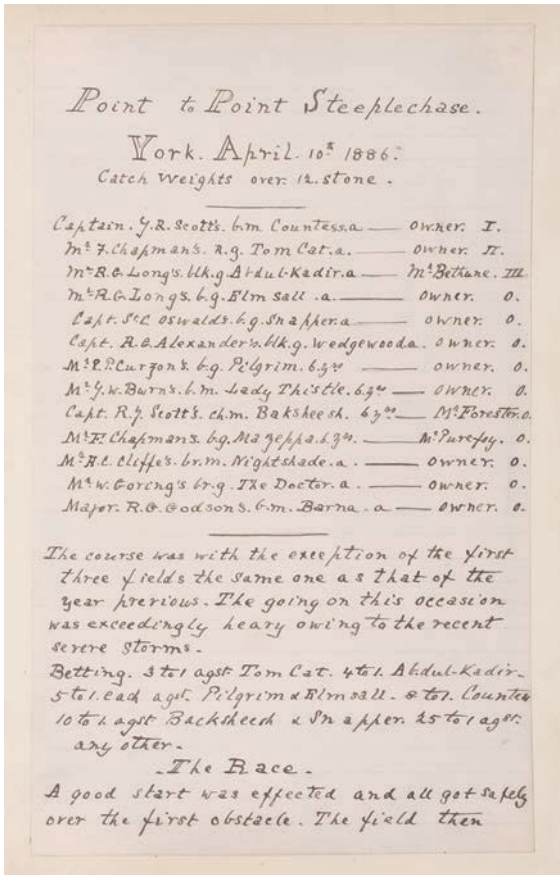 Point to Point Steeplechase.
York. April. 10th 1886.
Catch Weights over 12. stone.
Captain. Y.R. Scott's. b.m Countess.a — owner. I.
Mr. F. Chapman's. R.g. Tom Cat.a. — owner. II.
Mr. R.G. Long's. blk.g Abdul-Kadir.a — Mr. Bethune. III
Mr. R.G. Long's. b.g. Elmsall .a. — owner. 0.
Capt. St.C Oswald's. b.g. Snapper.a — owner. 0.
Capt. R.G. Alexander's. blk.g. Wedgewood a. owner. 0.
Mr. P.P. Curzon's. b.g. Pilgrim. 6.yrs — owner. 0.
Mr. Y.W. Burn's. b.m. Lady Thistle. 6.yrs — owner. 0.
Capt. R.Y. Scott's. ch.m. Baksheesh. 6 yrs — Mr. Forester. 0.
Mr. F. Chapman's. b.g. Mazeppa. 6.yrs. — Mr. Purefoy. 0.
Mr. H.C. Cliffe's. br.m. Nightshade. a. — owner. 0.
Mr. W. Goring's br.g. The Doctor. a. — owner. 0.
Major. R.G. Godson's. b.m. Barna. a — owner. 0.
The course was with the exception of the first
three fields the same one as that of the
year previous. The going on this occasion
was exceedingly heavy owing to the recent
severe storms.
Betting. 3 to 1 agst Tom Cat. 4 to 1. Abdul-Kadir.
5 to 1. each agst. Pilgrim & Elmsall. 8 to 1. Countess
10 to 1. agst Backsheesh & Snapper. 25 to 1 agst.
any other.
The Race.
A good start was effected and all got safely
over the first obstacle. The field then